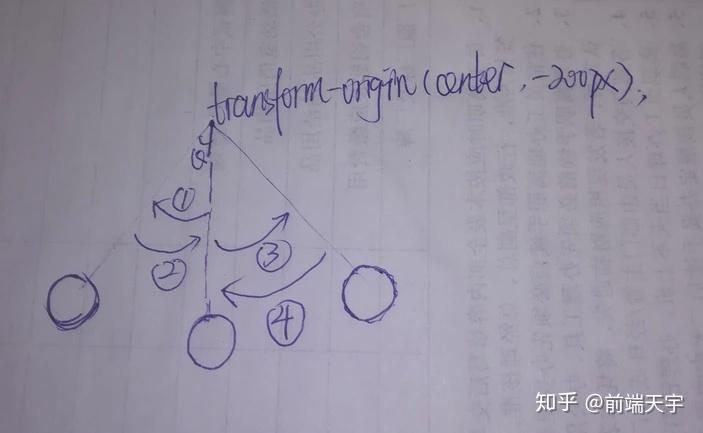 transform-origin(center,-200px);
①
②
③
④
知乎 @前端天宇